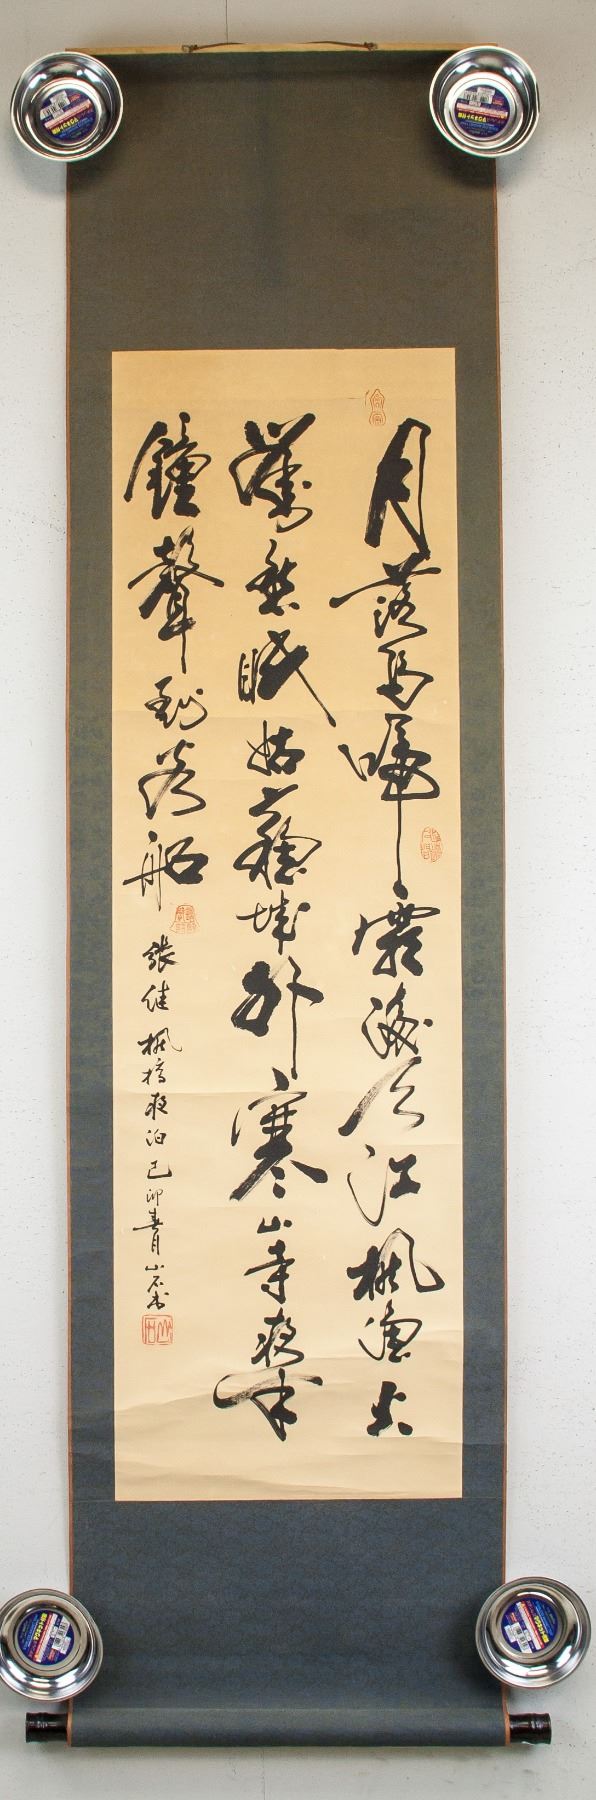 月落烏啼霜滿天江楓漁火
對愁眠姑蘇城外寒山寺夜半
鐘聲到客船 張継楓橋夜泊己卯春月山石書